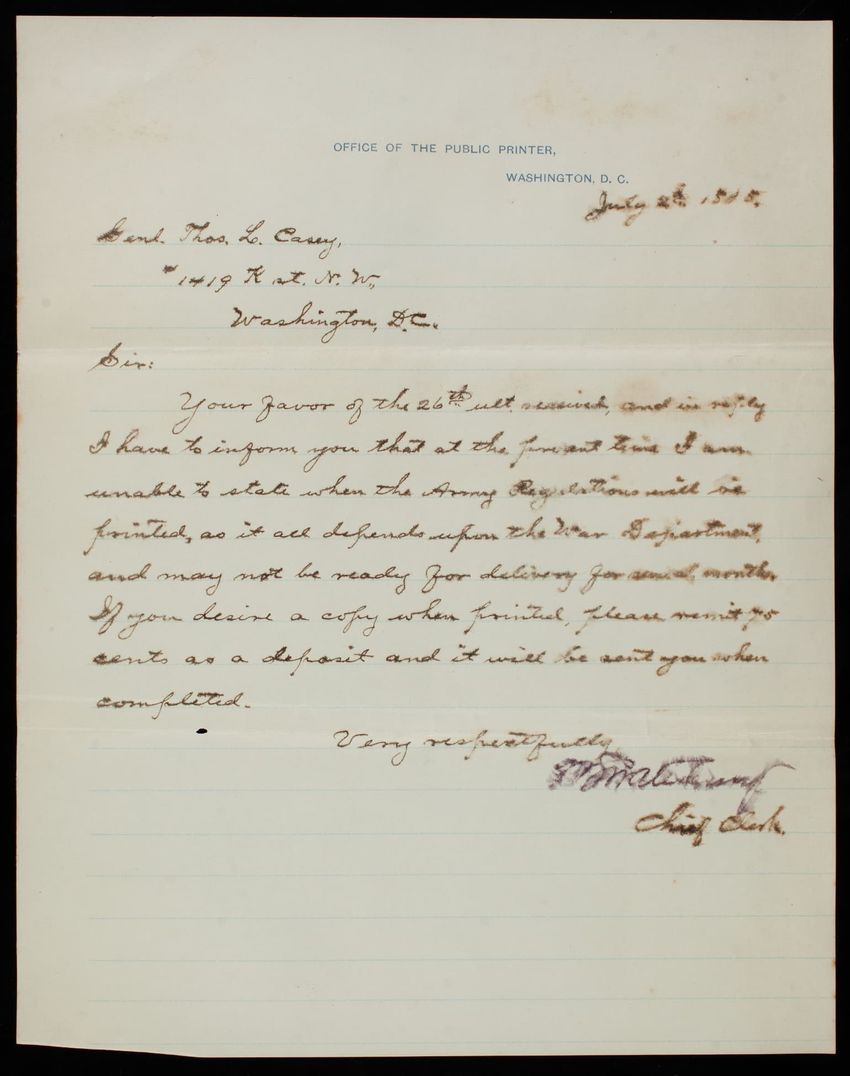 OFFICE OF THE PUBLIC PRINTER,
WASHINGTON, D. C.
July 2d. 1895.
Genl. Thos. L. Casey,
# 1419 K st. N. W.,
Washington, D.C.
Sir:
Your favor of the 26th ult. received, and in reply
I have to inform you that at the present time I am
unable to state when the Army Regulations will be
printed, as it all depends upon the War Department,
and may not be ready for delivery for several months.
If you desire a copy when printed, please remit 75
cents as a deposit and it will be sent you when
completed.
Very respectfully,
Chief Clerk.